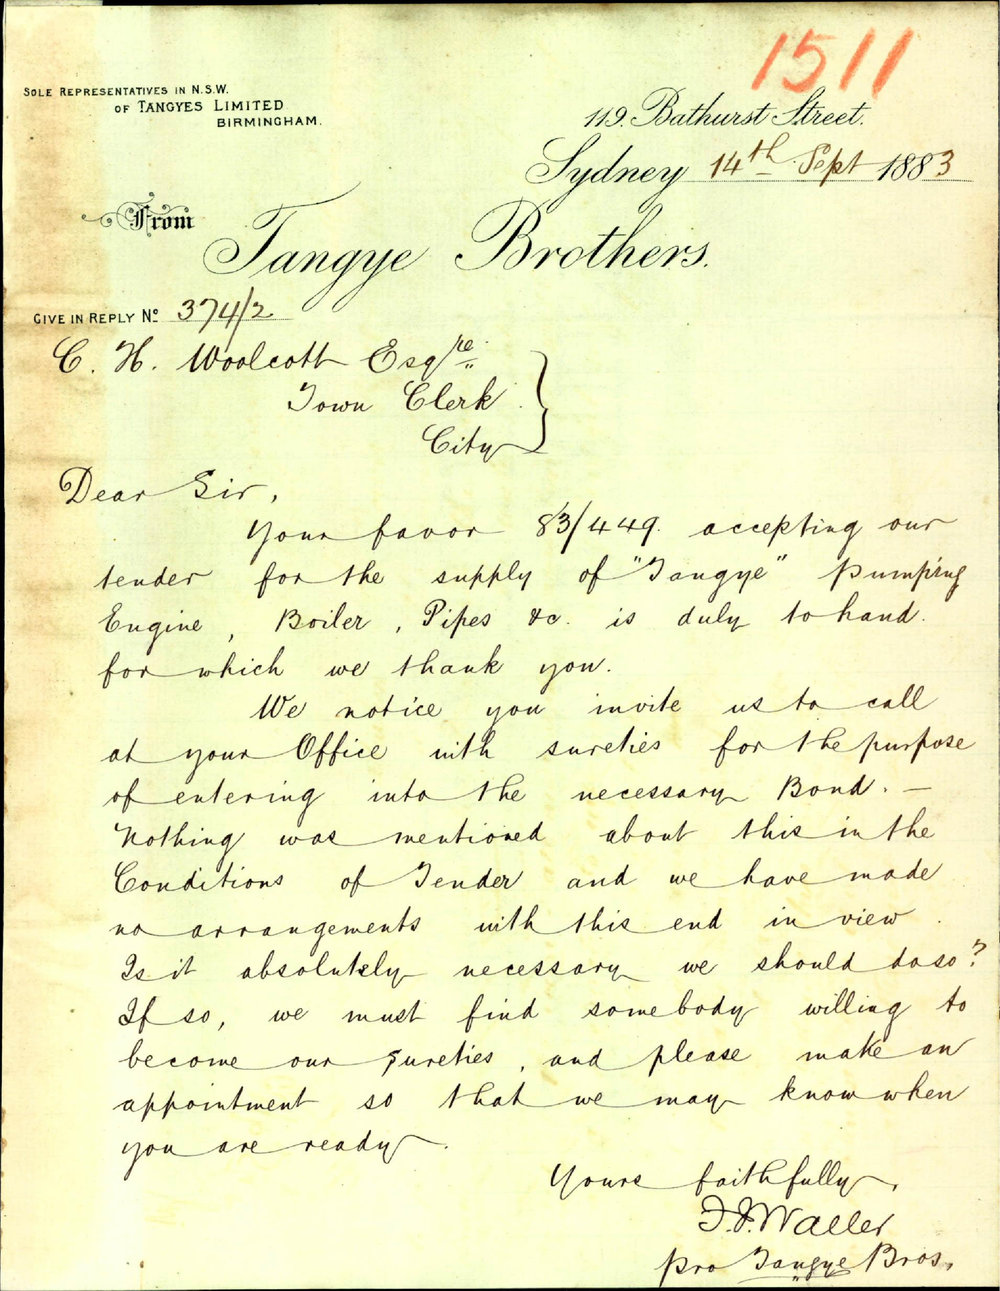 1511
SOLE REPRESENTATIVES IN N.S.W.
OF TANGYES LIMITED
BIRMINGHAM.
119. Bathurst Street.
Sydney 14th Sept 1883
From
Tangye Brothers.
GIVE IN REPLY No 374/2
C. H. Woolcott Esqre
Town Clerk
City
Dear Sir,
Your favor 83/449. accepting our
tender for the supply of "Tangye" Pumping
Engine, Boiler, Pipes &c. is duly to hand.
for which we thank you.
We notice you invite us to call
at your Office with sureties for the purpose
of entering into the necessary Bond. —
Nothing was mentioned about this in the
Conditions of Tender and we have made
no arrangements with this end in view.
Is it absolutely necessary we should do so?
If so, we must find somebody willing to
become our sureties, and please make an
appointment so that we may know when
you are ready.
Yours faithfully,
Waller
pro Tangye Bros.